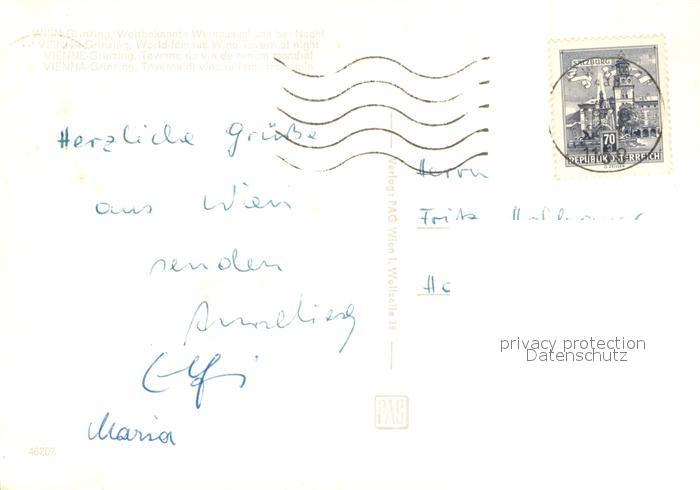 WIEN-Grinzing, Weltbekannte Weinausschank bei Nacht
VIENNA-Grinzing, World-famous Wine Tavern at night
VIENNE-Grinzing, Taverne de vin de renom mondial
VIENNA-Grinzing, Taverna di vino di fama mondiale
Herzliche Grüße
aus Wien
senden
Annelies
Elfi
Maria
46202
Verlag: PAG Wien I, Wollzeile 19
PAG
SALZBURG
70
REPUBLIK ÖSTERREICH
Herrn
Fritz
privacy protection
Datenschutz